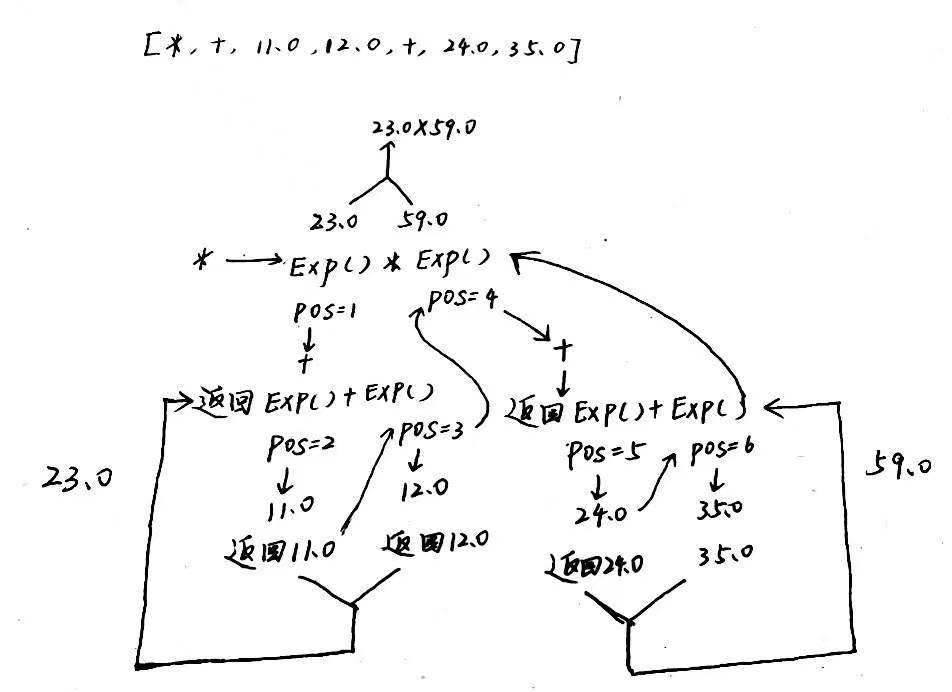 [*, +, 11.0, 12.0, +, 24.0, 35.0]
23.0×59.0
23.0 59.0
* Exp() * Exp()
pos=1 pos=4
+ +
返回 Exp() + Exp() 返回 Exp() + Exp()
pos=2 pos=3 pos=5 pos=6
23.0 59.0
11.0 12.0 24.0 35.0
返回11.0 返回12.0 返回24.0 35.0